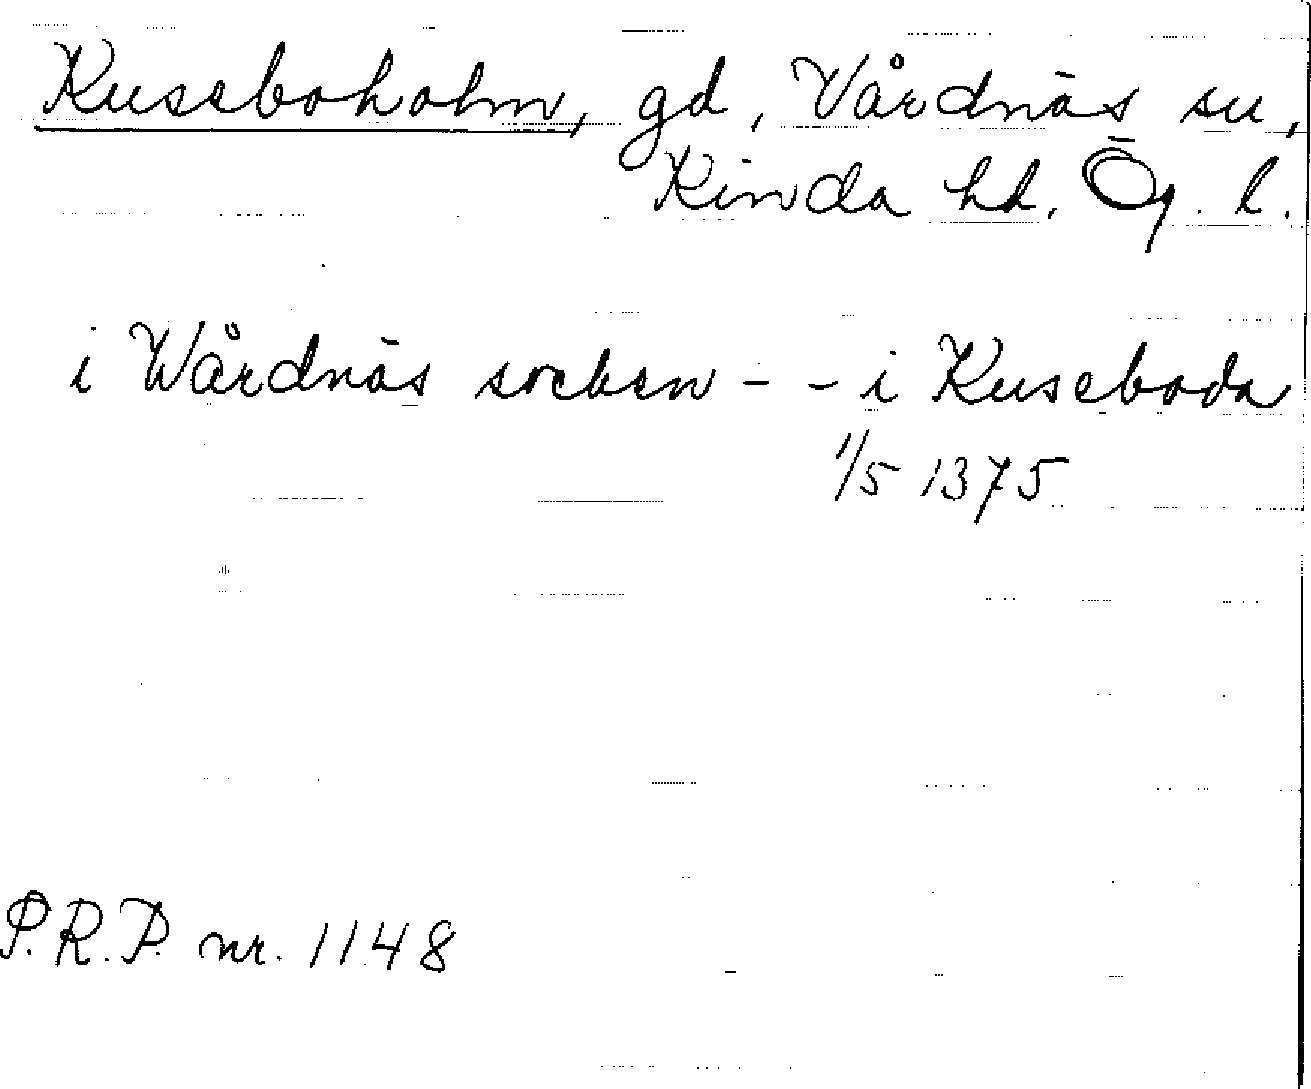 Kusseboholm, gd, Vårdnäs sn,
Kinda hd. Ög. l.
i Wårdnäs socken - - i Kuseboda
1/5 1375
P.R.P. nr. 1148